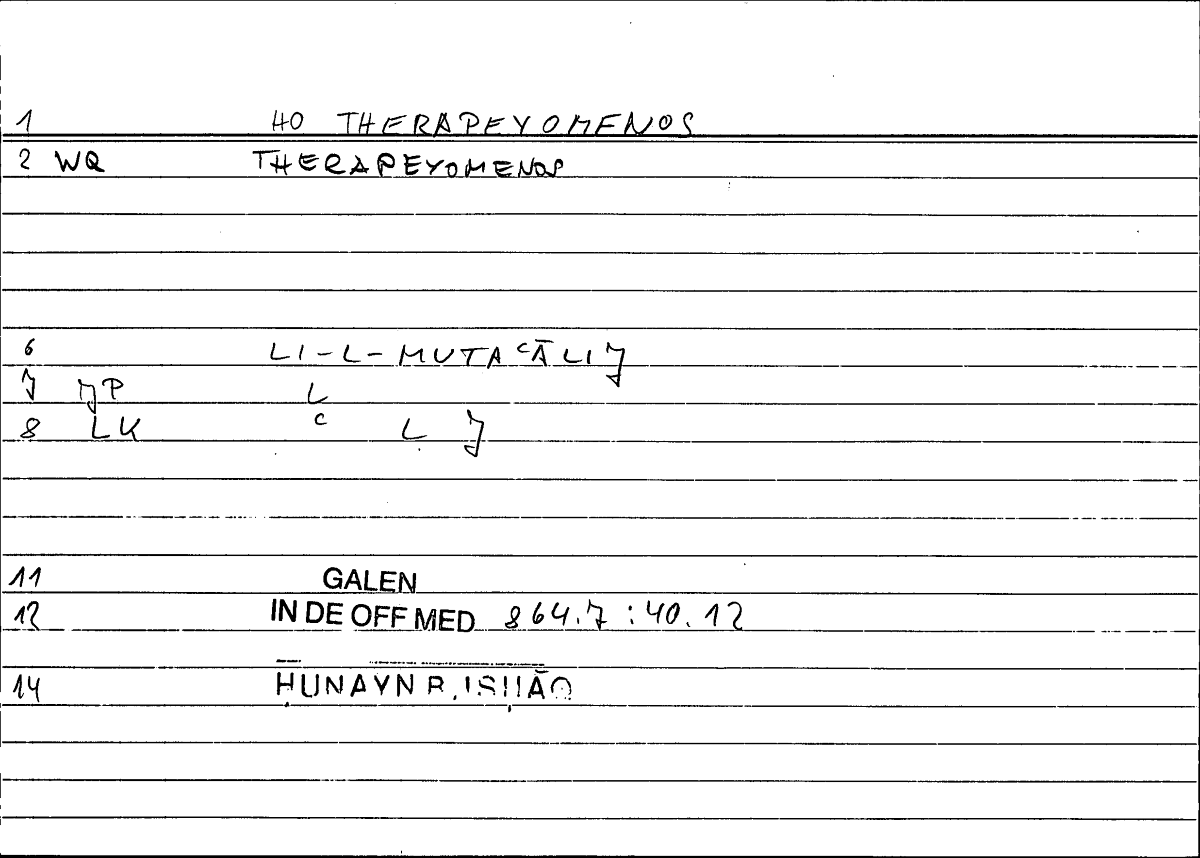 1 HO THERAPEYOMENOS
2 WQ THERAPEYOMENOS
6 LI-L-MUTAʿĀLIJ
7 JP L
8 LK ʿ L J
11 GALEN
12 IN DE OFF MED 864.7 : 40.12
14 ḤUNAYN B. ISḤĀQ